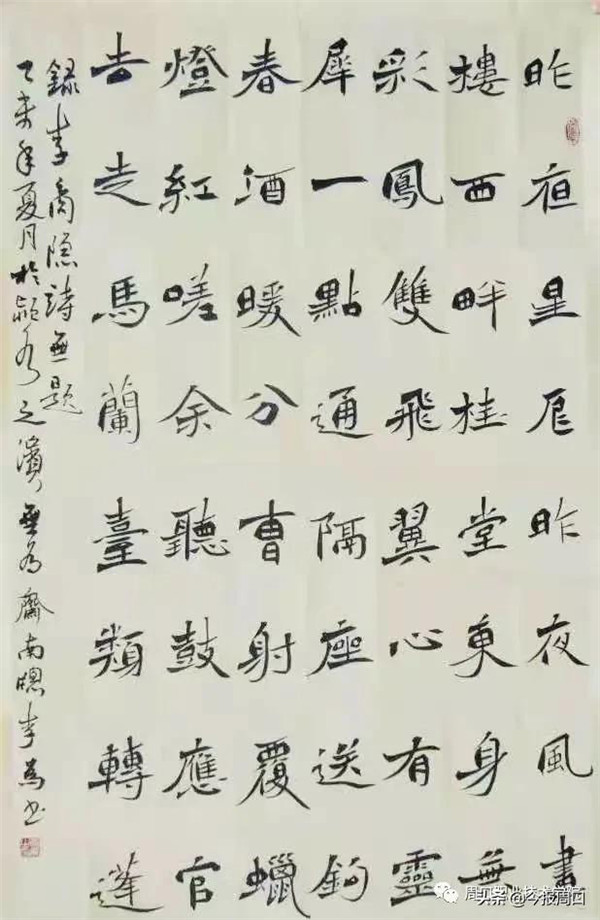 昨夜星辰昨夜風畫
樓西畔桂堂東身無
彩鳳雙飛翼心有靈
犀一點通隔座送鉤
春酒暖分曹射覆蠟
燈紅嗟余聽鼓應官
去走馬蘭臺類轉蓬
録李商隱詩無題
乙未年夏月於潁水之濱無为齋南牕李為书
头条 @今报周口